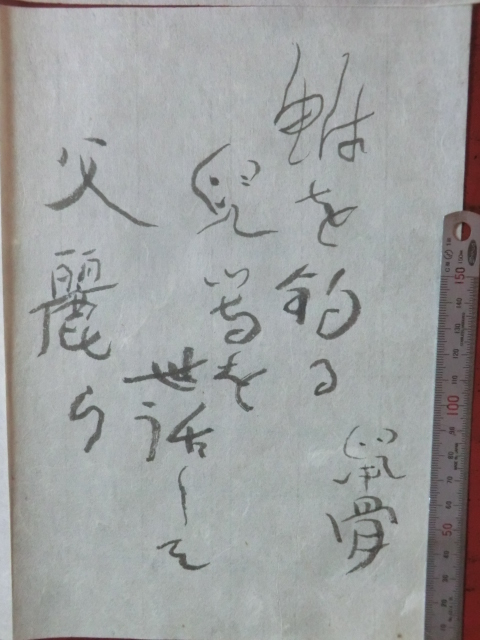 鼠骨
鮒を釣る
兒等を
世話して
父麗ら
150
100
50